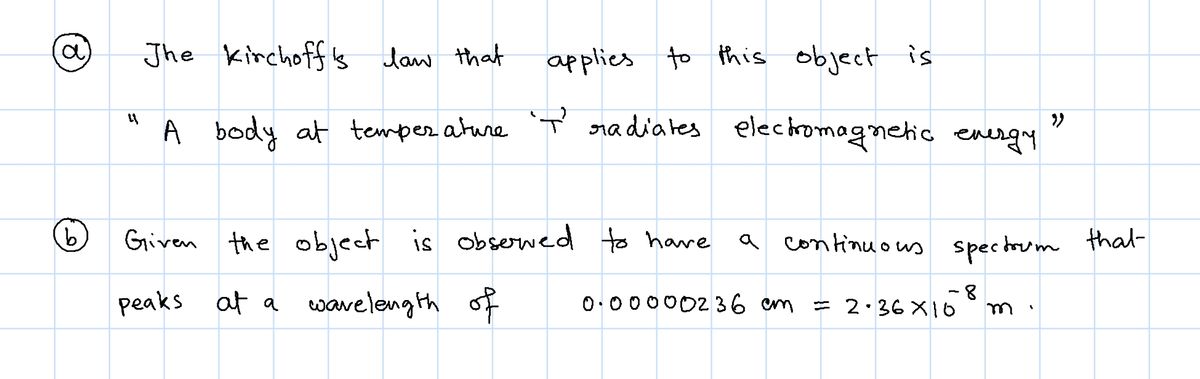 (a) The Kirchoff's law that applies to this object is
" A body at temperature 'T' radiates electromagnetic energy "
(b) Given the object is observed to have a continuous spectrum that
peaks at a wavelength of 0.00000236 cm = 2.36 × 10⁻⁸ m .